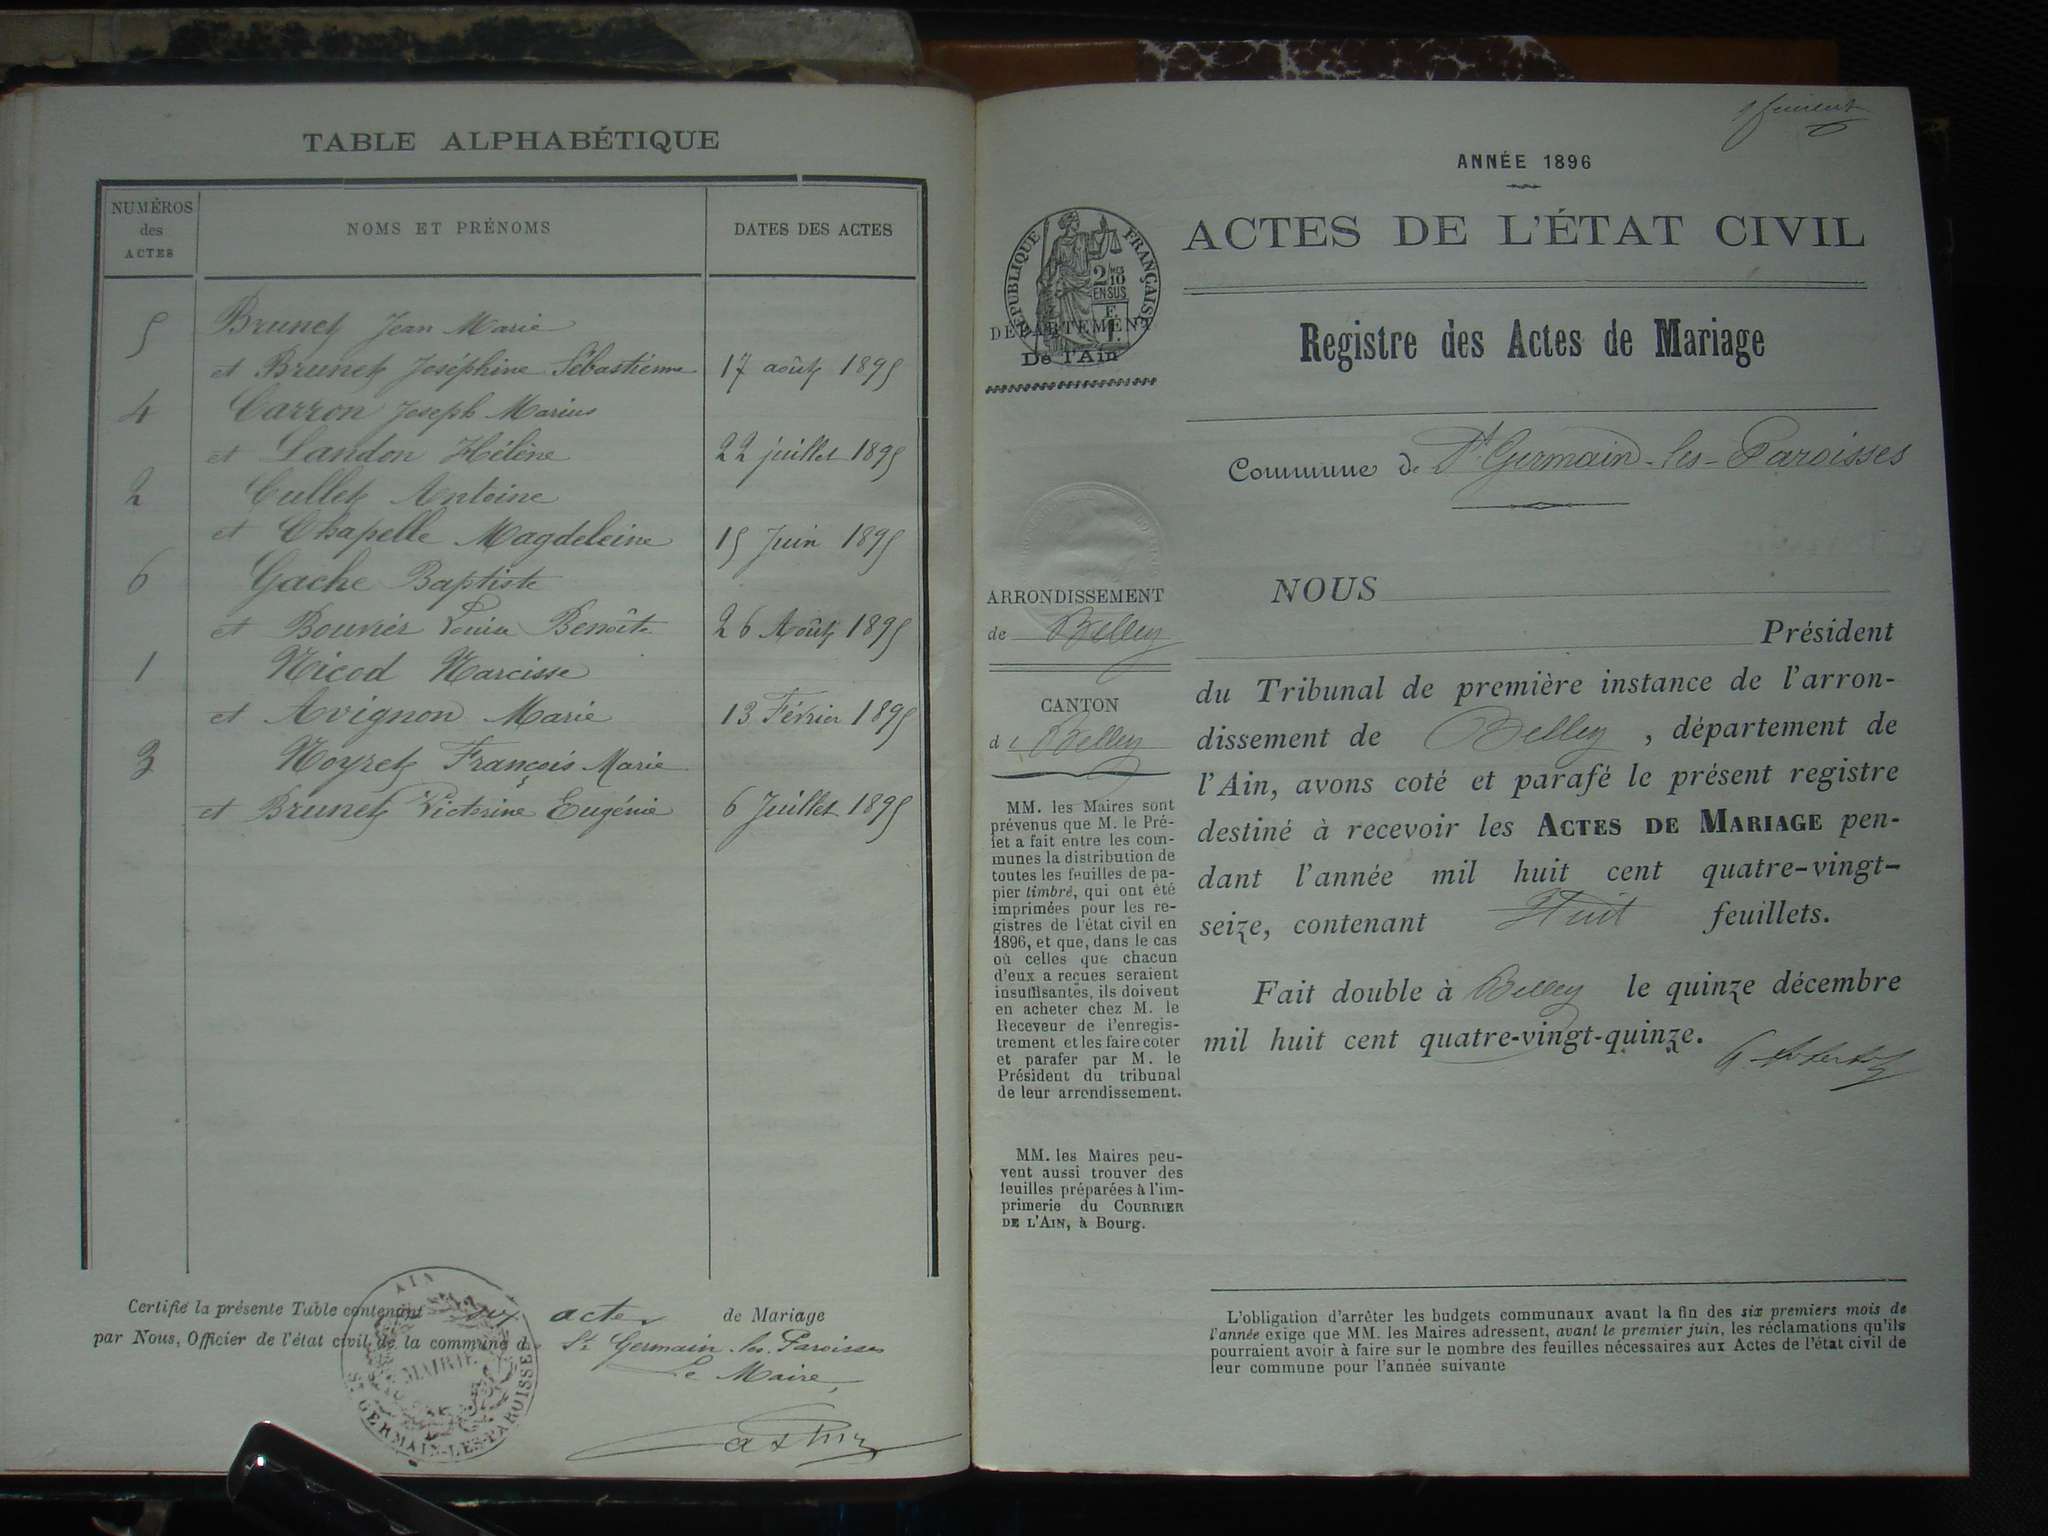 TABLE ALPHABÉTIQUE
NUMÉROS des ACTES
NOMS ET PRÉNOMS
DATES DES ACTES
5 Brunet Jean Marie
et Brunet Joséphine Sébastienne 17 août 1895
4 Carron Joseph Marius
et Landon Hélène 22 juillet 1895
2 Cullet Antoine
et Chapelle Magdeleine 15 Juin 1895
6 Gache Baptiste
et Bouvier Louise Benoîte 26 Août 1895
1 Nicod Narcisse
et Avignon Marie 13 Février 1895
3 Noyret François Marie
et Brunet Victorine Eugénie 6 Juillet 1895
Certifié la présente Table contenant six actes de Mariage
par Nous, Officier de l'état civil de la commune de St Germain-les-Paroisses
Le Maire,
AIN
MAIRIE
ST GERMAIN-LES-PAROISSES
1er feuillet
ANNÉE 1896
ACTES DE L'ÉTAT CIVIL
RÉPUBLIQUE FRANÇAISE
2/10 EN SUS
DÉPARTEMENT
De l'Ain
Registre des Actes de Mariage
Commune de St Germain-les-Paroisses
ARRONDISSEMENT
de Belley
CANTON
de Belley
MM. les Maires sont
prévenus que M. le Pré-
fet a fait entre les com-
munes la distribution de
toutes les feuilles de pa-
pier timbré, qui ont été
imprimées pour les re-
gistres de l'état civil en
1896, et que, dans le cas
où celles que chacun
d'eux a reçues seraient
insuffisantes, ils doivent
en acheter chez M. le
Receveur de l'enregis-
trement et les faire coter
et parafer par M. le
Président du tribunal
de leur arrondissement.
MM. les Maires peu-
vent aussi trouver des
feuilles préparées à l'im-
primerie du COURRIER
DE L'AIN, à Bourg.
NOUS
Président
du Tribunal de première instance de l'arron-
dissement de Belley, département de
l'Ain, avons coté et parafé le présent registre
destiné à recevoir les ACTES DE MARIAGE pen-
dant l'année mil huit cent quatre-vingt-
seize, contenant Huit feuillets.
Fait double à Belley le quinze décembre
mil huit cent quatre-vingt-quinze.
L'obligation d'arrêter les budgets communaux avant la fin des six premiers mois de
l'année exige que MM. les Maires adressent, avant le premier juin, les réclamations qu'ils
pourraient avoir à faire sur le nombre des feuilles nécessaires aux Actes de l'état civil de
leur commune pour l'année suivante